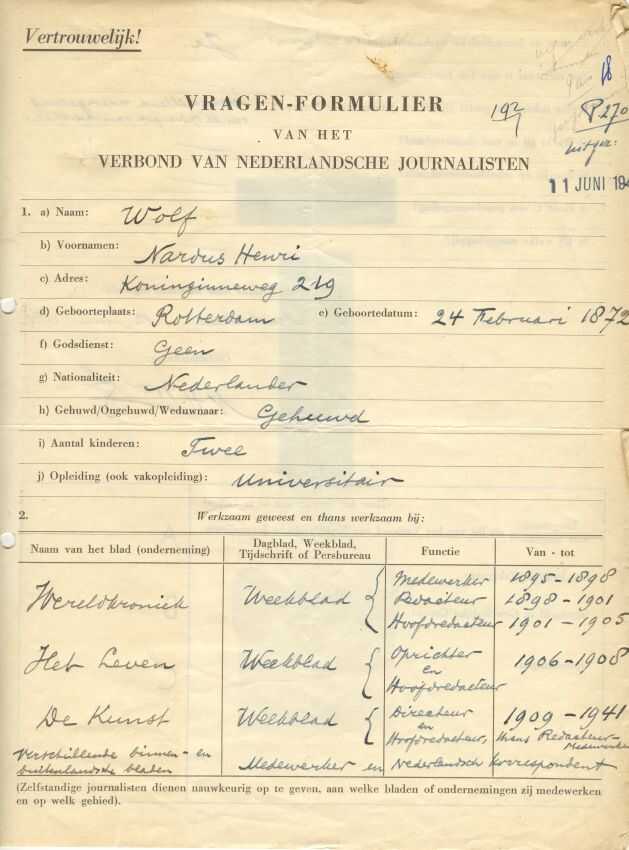 Vertrouwelijk!
18
VRAGEN-FORMULIER
192
P270
VAN HET
uitger:
VERBOND VAN NEDERLANDSCHE JOURNALISTEN
11 JUNI 194
1. a) Naam: Wolf
b) Voornamen: Nardus Henri
c) Adres: Koninginneweg 219
d) Geboorteplaats: Rotterdam e) Geboortedatum: 24 Februari 1872
f) Godsdienst: Geen
g) Nationaliteit: Nederlander
h) Gehuwd/Ongehuwd/Weduwnaar: Gehuwd
i) Aantal kinderen: Twee
j) Opleiding (ook vakopleiding): Universitair
2. Werkzaam geweest en thans werkzaam bij:
Naam van het blad (onderneming) Dagblad, Weekblad, Tijdschrift of Persbureau Functie Van - tot
Wereldkroniek Weekblad Medewerker 1895-1898
Redacteur 1898-1901
Hoofdredacteur 1901-1905
Het Leven Weekblad Oprichter en Hoofdredacteur 1906-1908
De Kunst Weekblad Directeur en Hoofdredacteur, 1909-1941
thans Redacteur-Medewerker
Verschillende binnen- en
buitenlandsche bladen Medewerker en Nederlandsch korrespondent
(Zelfstandige journalisten dienen nauwkeurig op te geven, aan welke bladen of ondernemingen zij medewerken
en op welk gebied).